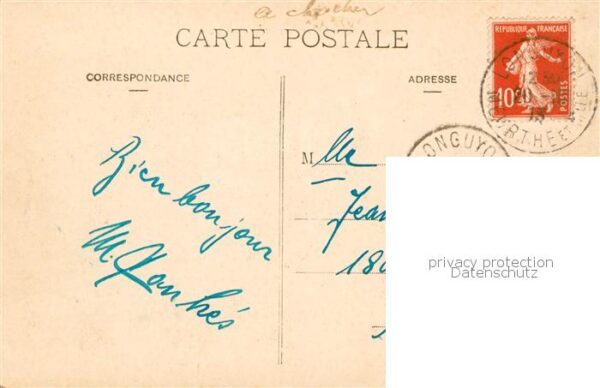 a chercher
CARTE POSTALE
CORRESPONDANCE
ADRESSE
REPUBLIQUE FRANÇAISE
10
POSTES
LONGUYON
MEURTHE ET
ONGUYO
Bien bonjour
M.
M lle
Jean
18
privacy protection
Datenschutz